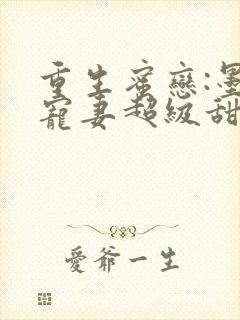 重生蜜戀:墨
寵妻超級甜
愛爺一生